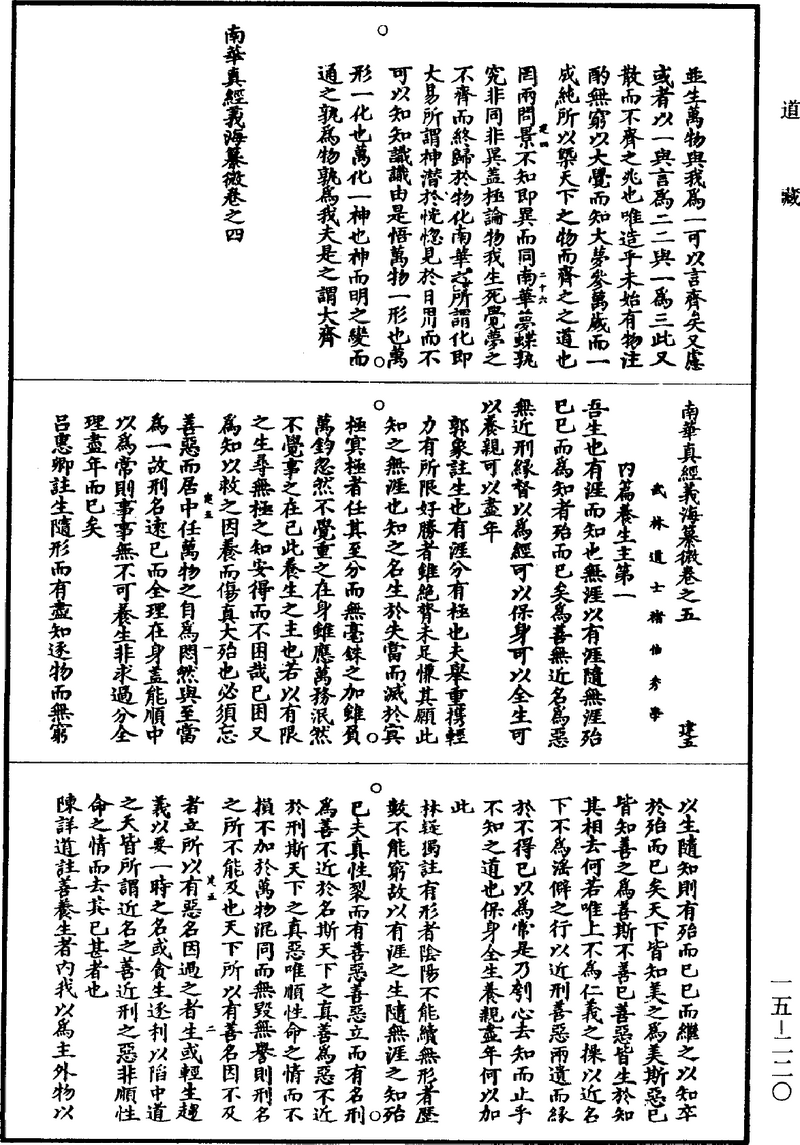 道藏
並生萬物與我爲一可以言齊矣又慮
或者以一與言爲二二與一爲三此又
散而不齊之兆也唯造乎未始有物注
酌無窮以大覺而知大夢參萬歲而一
成純所以槩天下之物而齊之之道也
罔兩問景不知即異而同南華夢蝶孰
建四
二十六
究非同非異蓋極論物我生死覺夢之
不齊而終歸於物化南華之所謂化即
大易所謂神潛於恍惚見於日用而不
可以知知識識由是悟萬物一形也萬
形一化也萬化一神也神而明之變而
通之孰爲物孰爲我夫是之謂大齊
南華真經義海纂微卷之四
南華真經義海纂微卷之五
建五
武林道士褚伯秀學
內篇養生主第一
吾生也有涯而知也無涯以有涯隨無涯殆
已已而爲知者殆而已矣爲善無近名爲惡
無近刑緣督以爲經可以保身可以全生可
以養親可以盡年
郭象註生也有涯分有極也夫舉重攜輕
力有所限好勝者雖絕膂未足慊其願此
知之無涯也知之名生於失當而滅於冥
極冥極者任其至分而無毫銖之加雖負
萬鈞忽然不覺重之在身雖應萬務泯然
不覺事之在己此養生之主也若以有限
之生尋無極之知安得而不困哉已困又
爲知以救之因養而傷真大殆也必須忘
建五
一
善惡而居中任萬物之自爲悶然與至當
爲一故刑名遠已而全理在身蓋能順中
以爲常則事事無不可養生非求過分全
理盡年而已矣
呂惠卿註生隨形而有盡知逐物而無窮
以生隨知則有殆而已已而繼之以知卒
於殆而已矣天下皆知美之爲美斯惡已
皆知善之爲善斯不善已善惡皆生於知
其相去何若唯上不爲仁義之操以近名
下不爲淫僻之行以近刑善惡兩遣而緣
於不得已以爲常是乃刳心去知而止乎
不知之道也保身全生養親盡年何以加
此
林疑獨註有形者陰陽不能續無形者歷
數不能窮故以有涯之生隨無涯之知殆
已夫真性裂而有善惡善惡立而有名刑
爲善不近於名斯天下之真善爲惡不近
於刑斯天下之真惡唯順性命之情而不
損不加於萬物混同而無毀無譽則刑名
之所不能及也天下所以有善名因不及
建五
二
者立所以有惡名因過之者生或輕生趨
義以要一時之名或貪生逐利以陷中道
之夭皆所謂近名之善近刑之惡非順性
命之情而去其已甚者也
陳詳道註善養生者內我以爲主外物以
一五—二二〇